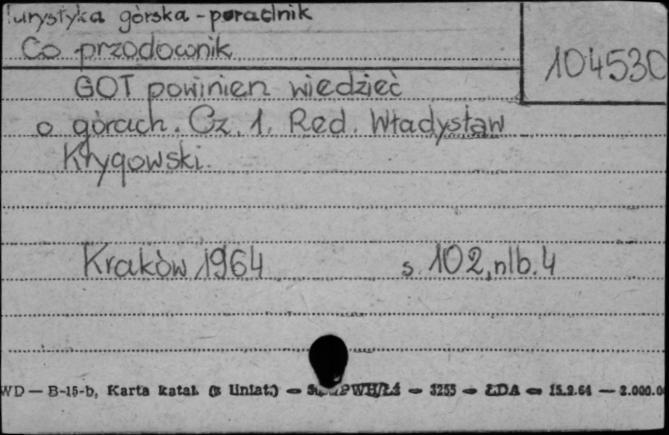 turystyka górska - poradnik
Co przodownik
104530
GOT powinien wiedzieć
o górach. Cz. 1. Red. Władysław
Krygowski.
Kraków 1964 s. 102, nlb. 4
WD — B-15-b, Karta katal. (z liniat.) — PWH/Łś — 3255 — ŁDA — 15.9.64 — 2.000.0